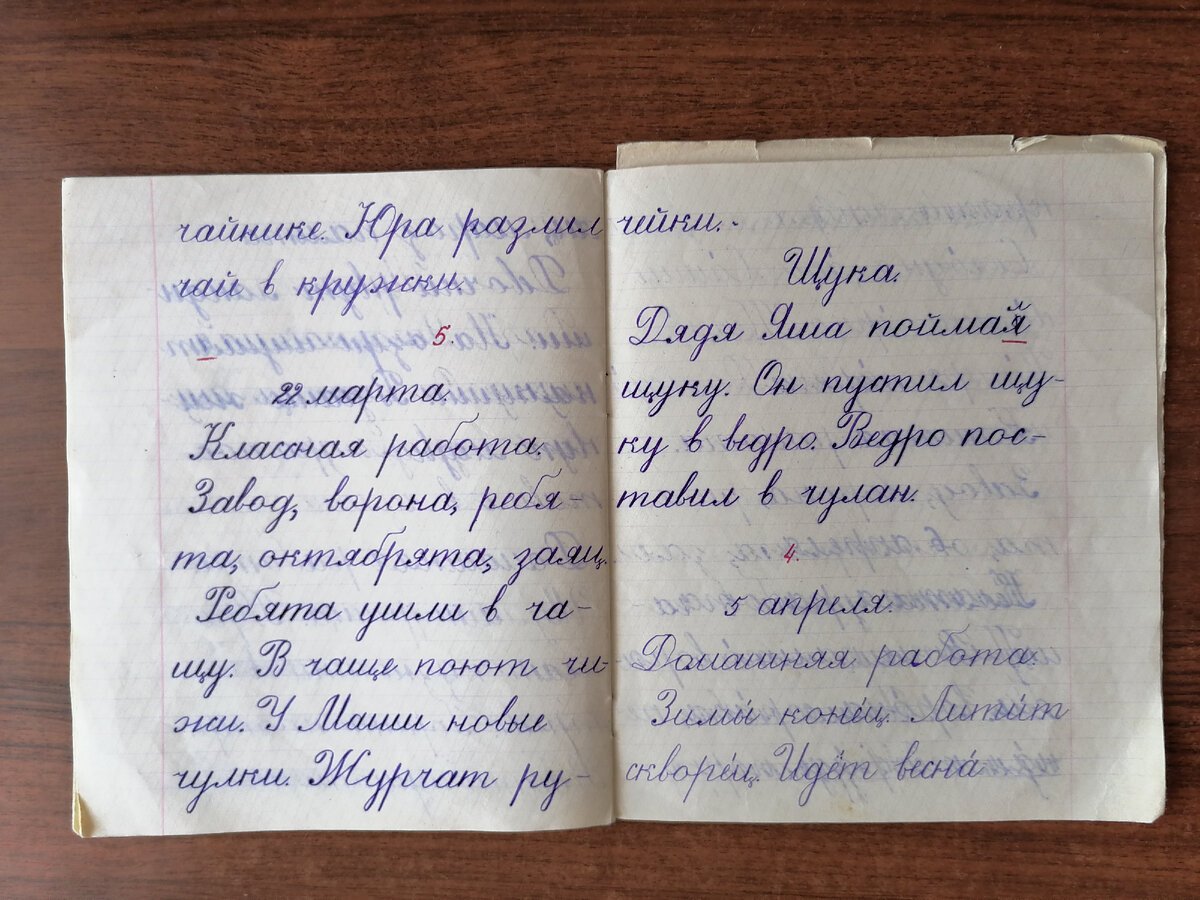 чайнике. Юра разлил
чай в кружки.
5.
22 марта.
Классная работа.
Завод, ворона, ребя-
та, октябрята, заяц.
Ребята ушли в ча-
щу. В чаще поют чи-
жи. У Маши новые
чулки. Журчат ру-
чейки.
Щука.
Дядя Яша
щуку. Он пустил щу-
ку в ведро. Ведро пос-
тавил в чулан.
4.
5 апреля.
Домашняя работа.
Зимы́ коне́ц. Лити́т
скворе́ц. Идёт весна́